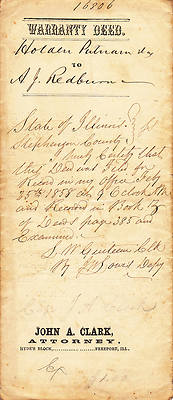 16806
WARRANTY DEED.
Holden Putnam &
TO
A J. Redburn
State of Illinois } ss
Stephenson County
I hereby Certify that
this Deed was Filed for
Record in my Office Feby
25th 1858 at 9 Oclock AM
and Recorded in Book 17
of Deeds page 385 and
Examined
L. W. Guiteau Clk
By Lewis Depy
JOHN A. CLARK,
ATTORNEY,
HYDE'S BLOCK, FREEPORT, ILL.
Ex